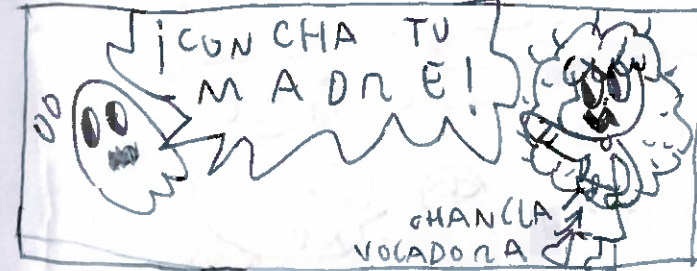 ¡CON CHA TU
MADRE!
CHANCLA
VOLADORA